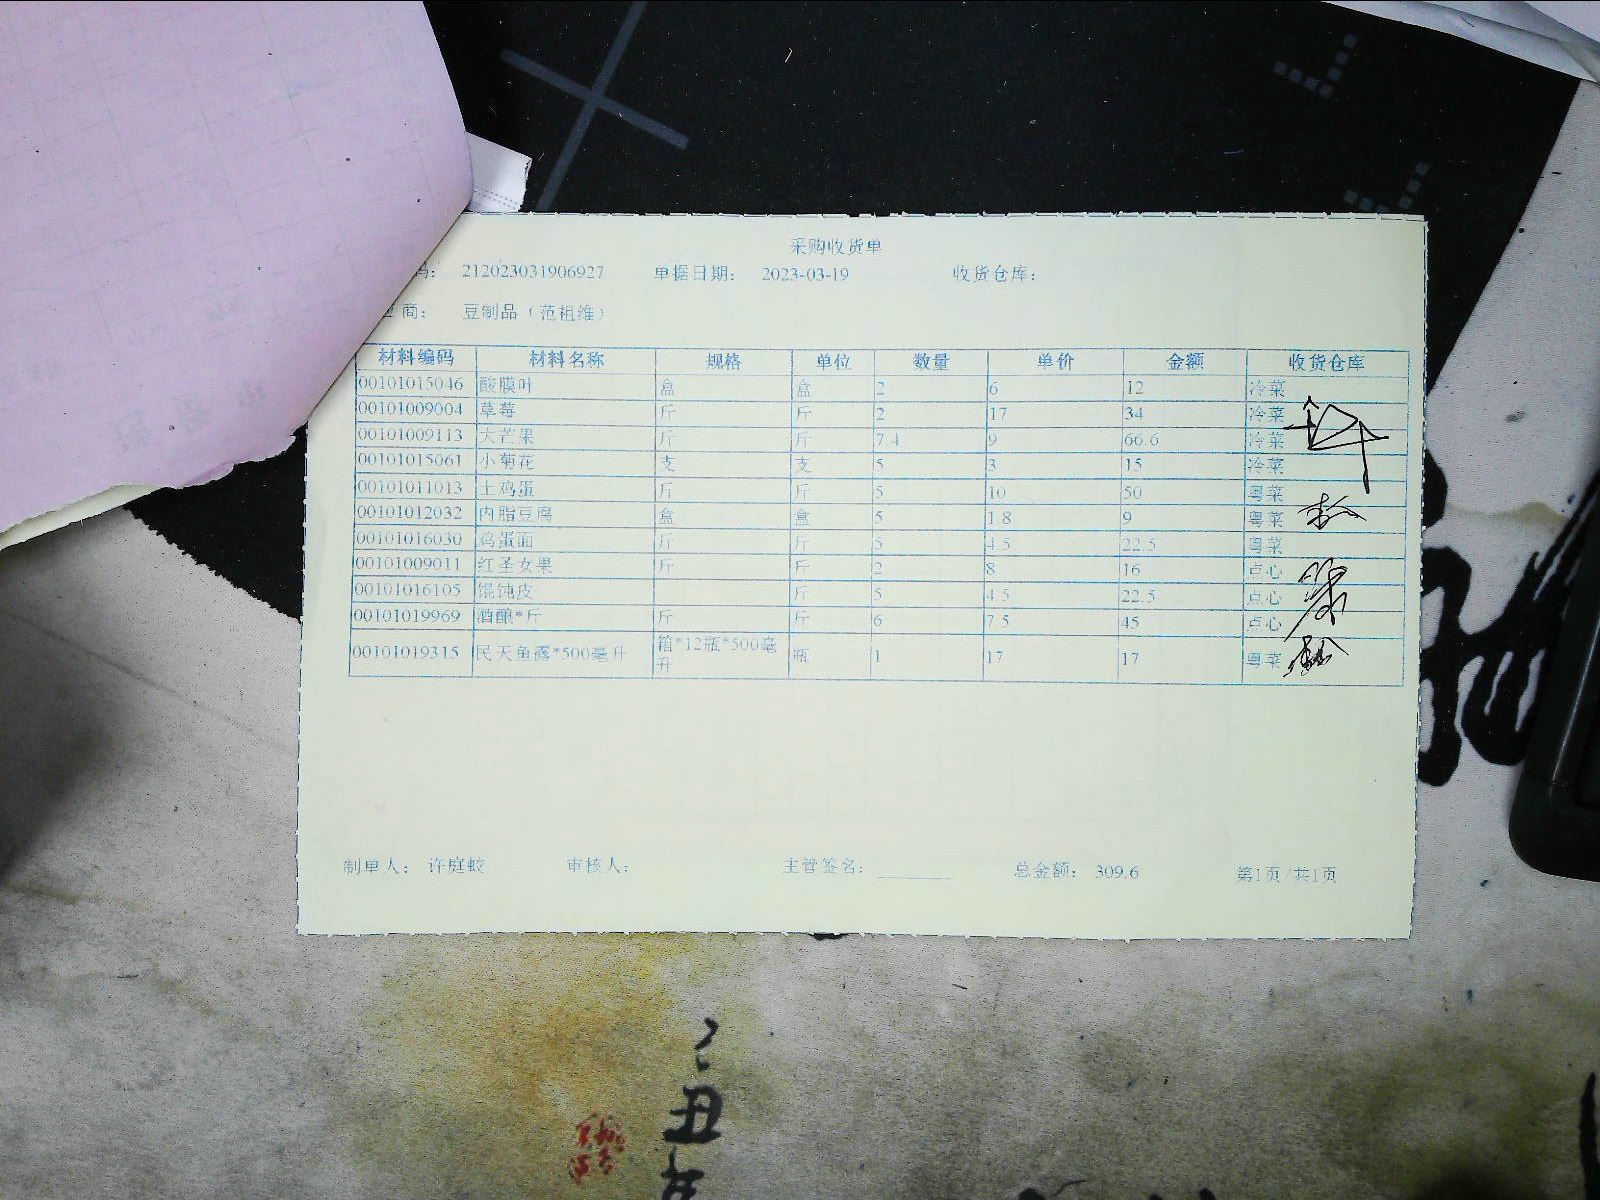 采购收货单
码： 212023031906927 单据日期： 2023-03-19 收货仓库：
商： 豆制品（范祖维）
材料编码 材料名称 规格 单位 数量 单价 金额 收货仓库
00101015046 酸膜叶 盒 盒 2 6 12 冷菜
00101009004 草莓 斤 斤 2 17 34 冷菜
00101009113 大芒果 斤 斤 7.4 9 66.6 冷菜
00101015061 小菊花 支 支 5 3 15 冷菜
00101011013 土鸡蛋 斤 斤 5 10 50 粤菜
00101012032 内脂豆腐 盒 盒 5 1.8 9 粤菜
00101016030 鸡蛋面 斤 斤 5 4.5 22.5 粤菜
00101009011 红圣女果 斤 斤 2 8 16 点心
00101016105 馄饨皮 斤 5 4.5 22.5 点心
00101019969 酒酿*斤 斤 斤 6 7.5 45 点心
00101019315 民天鱼露*500毫升 箱*12瓶*500毫升 瓶 1 17 17 粤菜
制单人： 许庭蛟 审核人： 主管签名： 总金额： 309.6 第1页/共1页
丑